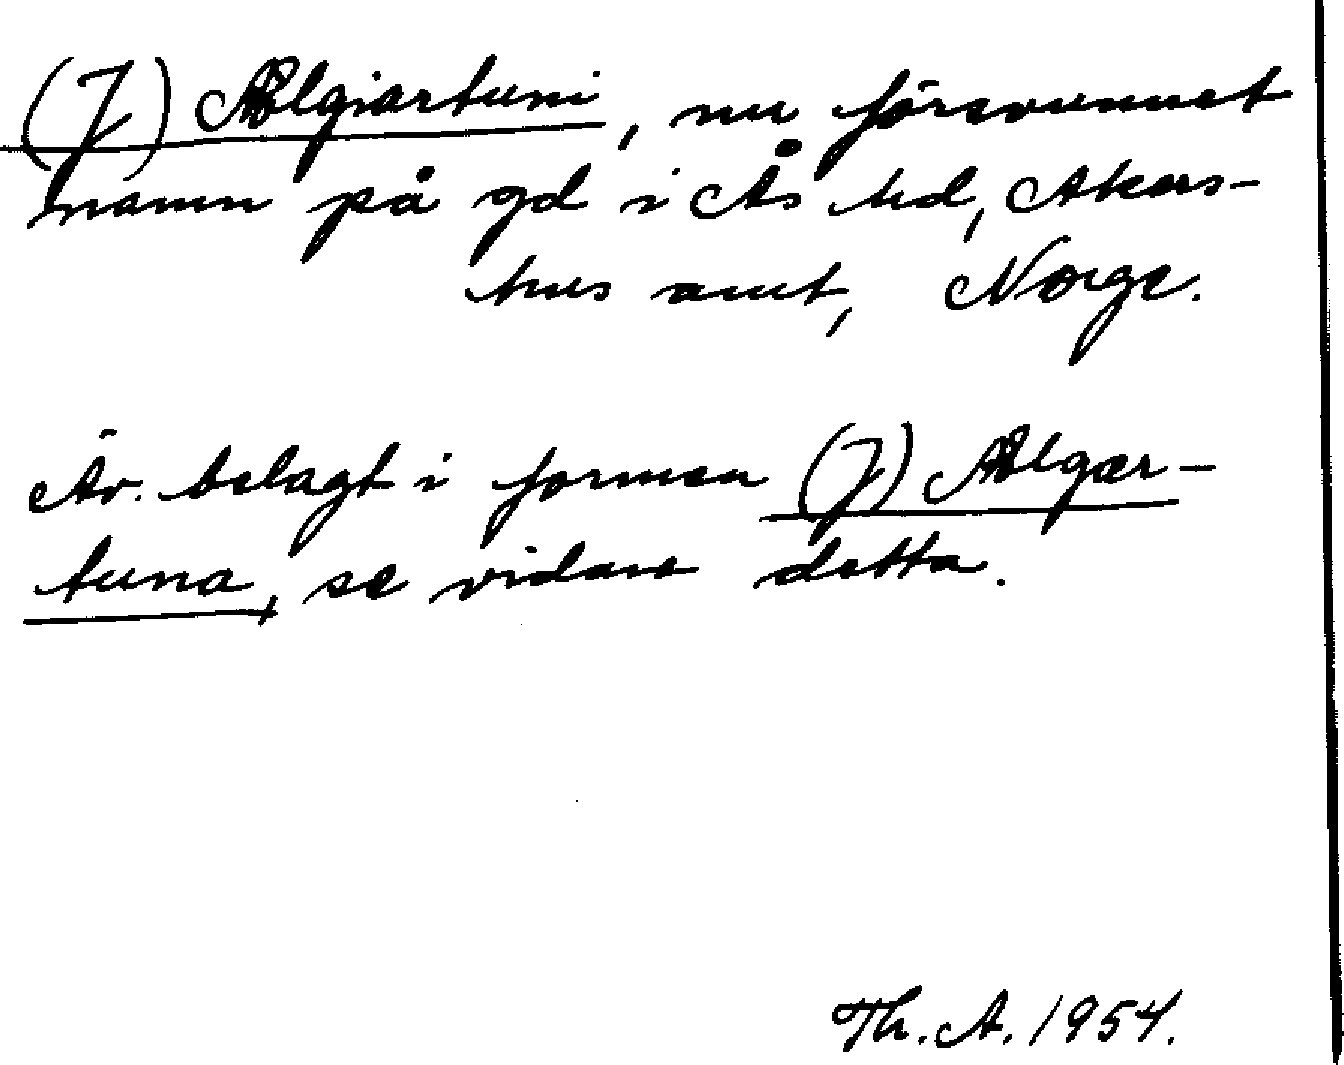 (J) Ælgiartuni, nu försvunnet
namn på gd i Ås hd, Akers-
hus amt, Norge.
Äv. belagt i formen (J) Ælgær-
tuna, se vidare detta.
Th. A. 1954.